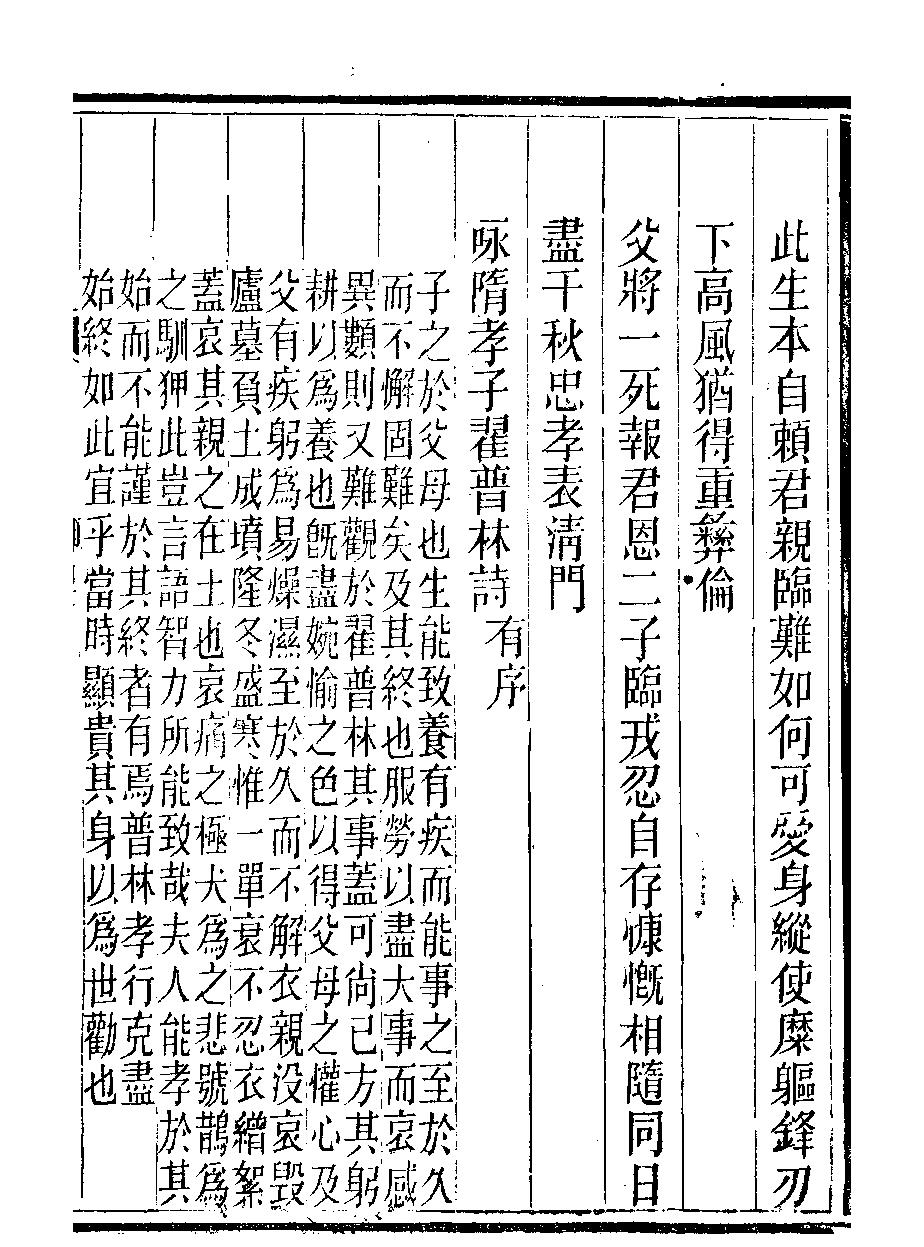 此生本自賴君親臨難如何可愛身縱使糜軀鋒刃
下高風猶得重彝倫
父將一死報君恩二子臨戎忍自存慷慨相隨同日
盡千秋忠孝表淸門
咏隋孝子翟普林詩有序
子之於父母也生能致養有疾而能事之至於久
而不懈固難矣及其終也服勞以盡大事而哀感
異類則又難觀於翟普林其事蓋可尙已方其躬
耕以爲養也旣盡婉愉之色以得父母之懽心及
父有疾躬爲易燥濕至於久而不解衣親没哀毀
廬墓負土成墳隆冬盛寒惟一單衰不忍衣繒絮
蓋哀其親之在土也哀痛之極犬爲之悲號鵲爲
之馴狎此豈言語智力所能致哉夫人能孝於其
始而不能謹於其終者有焉普林孝行克盡
始終如此宜乎當時顯貴其身以爲世勸也